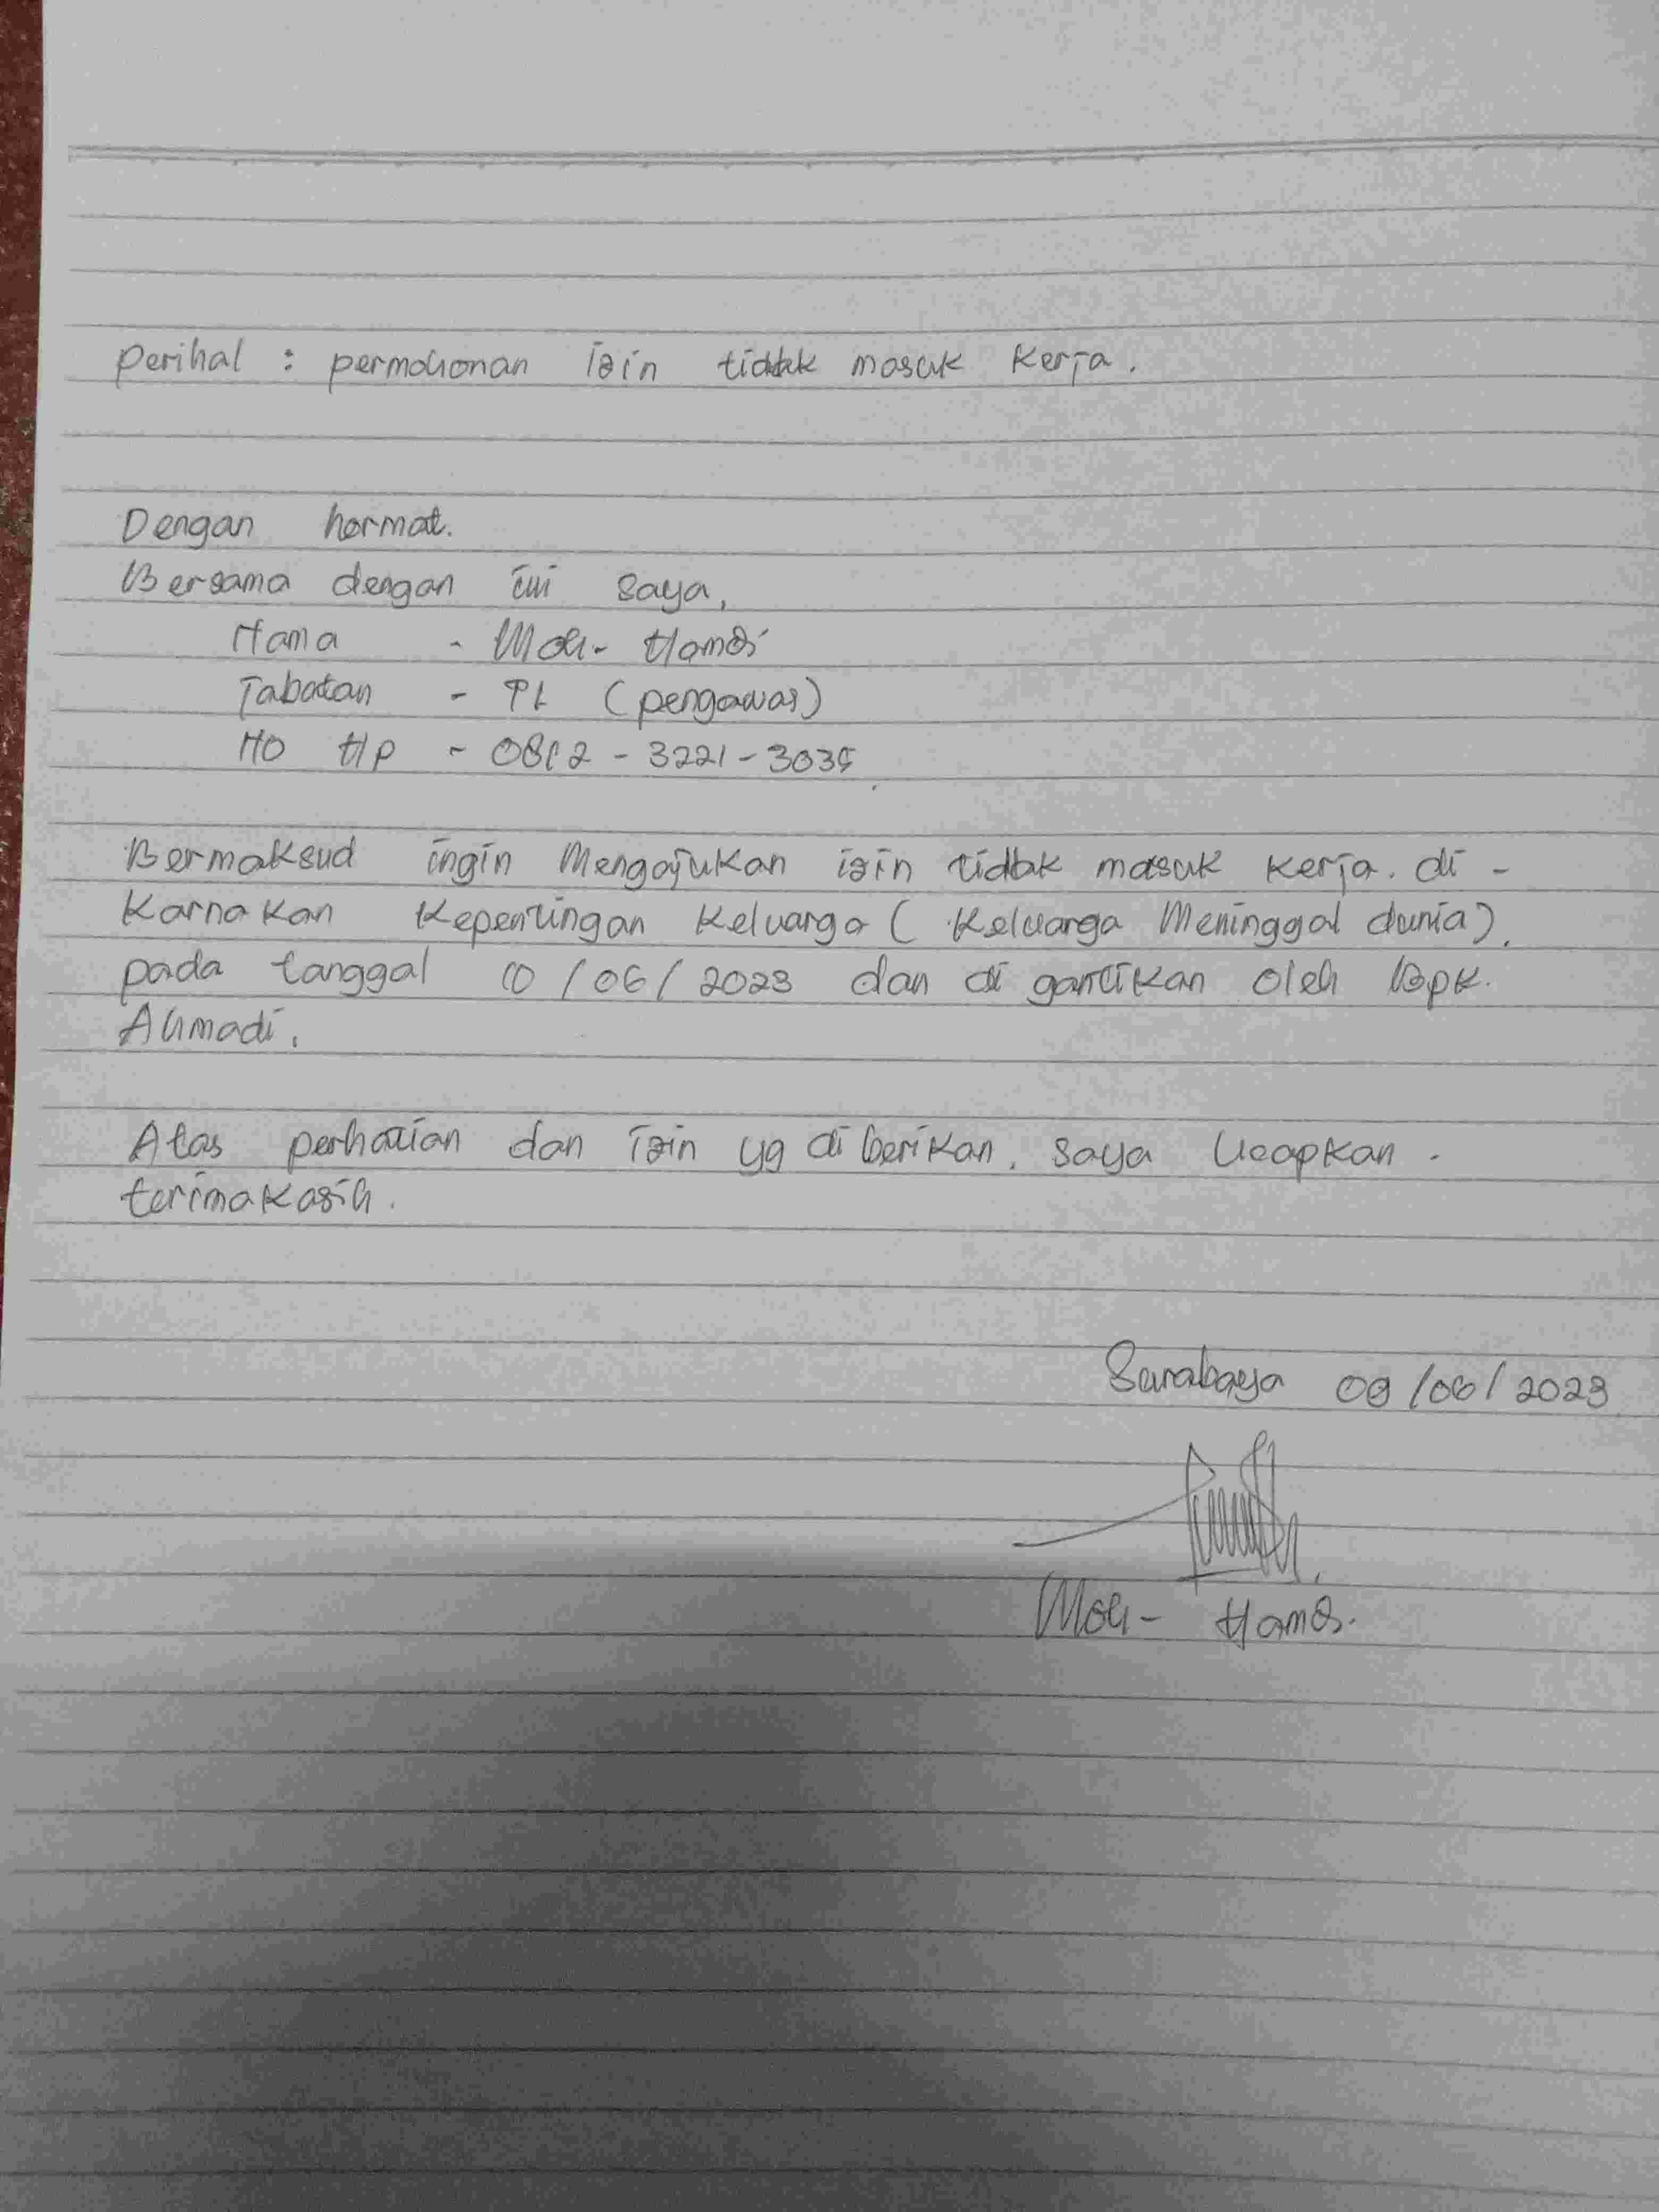 Perihal : permohonan izin tidak masuk kerja.
Dengan hormat.
Bersama dengan ini saya,
Nama - Moh- Hamdi
Jabatan - TL (pengawas)
NO Hp - 0812 - 3221 - 3035
Bermaksud ingin Mengajukan izin tidak masuk kerja. di -
karnakan kepentingan keluarga ( keluarga Meninggal dunia).
pada tanggal 10 / 06 / 2023 dan di gantikan oleh Bpk.
Ahmadi.
Atas perhatian dan izin yg di berikan. saya Ucapkan -
terimakasih.
Surabaya 09 / 06 / 2023
Moh- Hamdi.